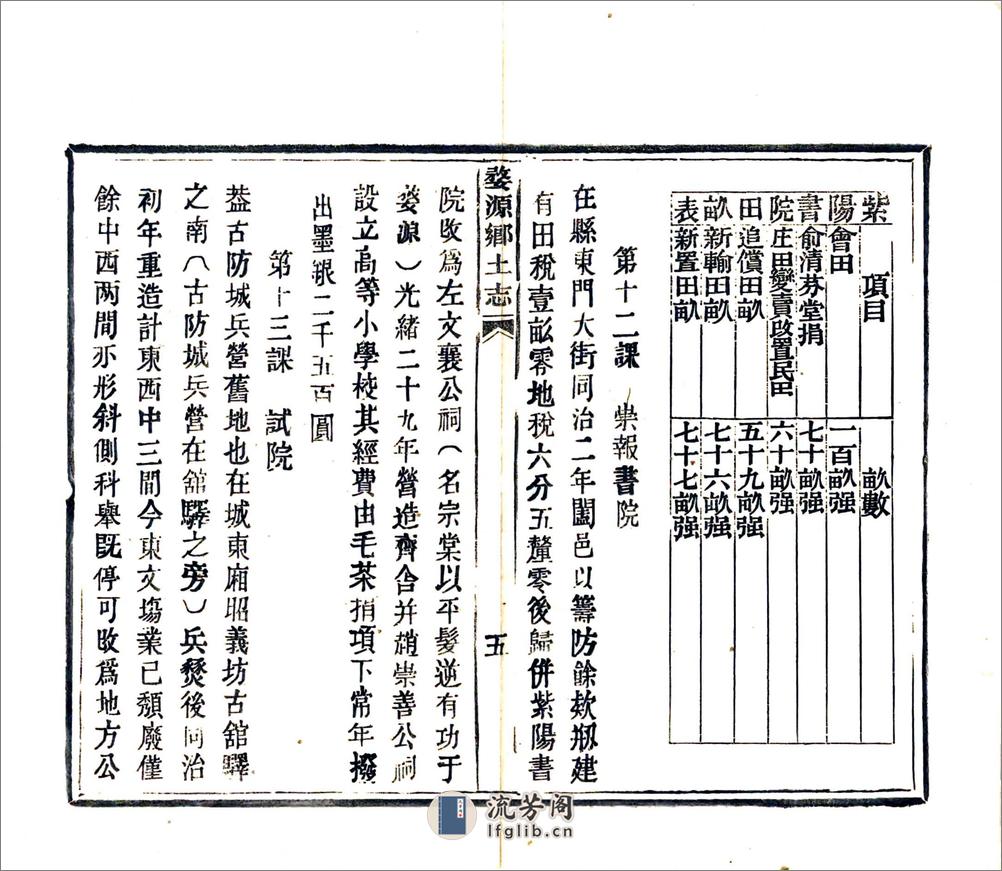 紫陽書院田畝表
項目 畝數
會田 一百畝强
俞清芬堂捐 七十畝强
庄田變賣改置民田 六十畝强
追償田畝 五十九畝强
新輸田畝 七十六畝强
新置田畝 七十七畝强
第十二課 崇報書院
在縣東門大街同治二年闔邑以籌防餘欵剏建
有田稅壹畝零地稅六分五釐零後歸併紫陽書
婺源鄉土志 五
院改爲左文襄公祠(名宗棠以平髮逆有功于
婺源)光緒二十九年營造齋舍并趙崇善公祠
設立高等小學校其經費由毛茶捐項下常年撥
出墨銀二千五百圓
第十三課 試院
葢古防城兵營舊地也在城東廂昭義坊古舘驛
之南(古防城兵營在舘驛之旁)兵燹後同治
初年重造計東西中三間今東文塲業已頹廢僅
餘中西两間亦形斜側科舉既停可改爲地方公
流芳阁
lfglib.cn